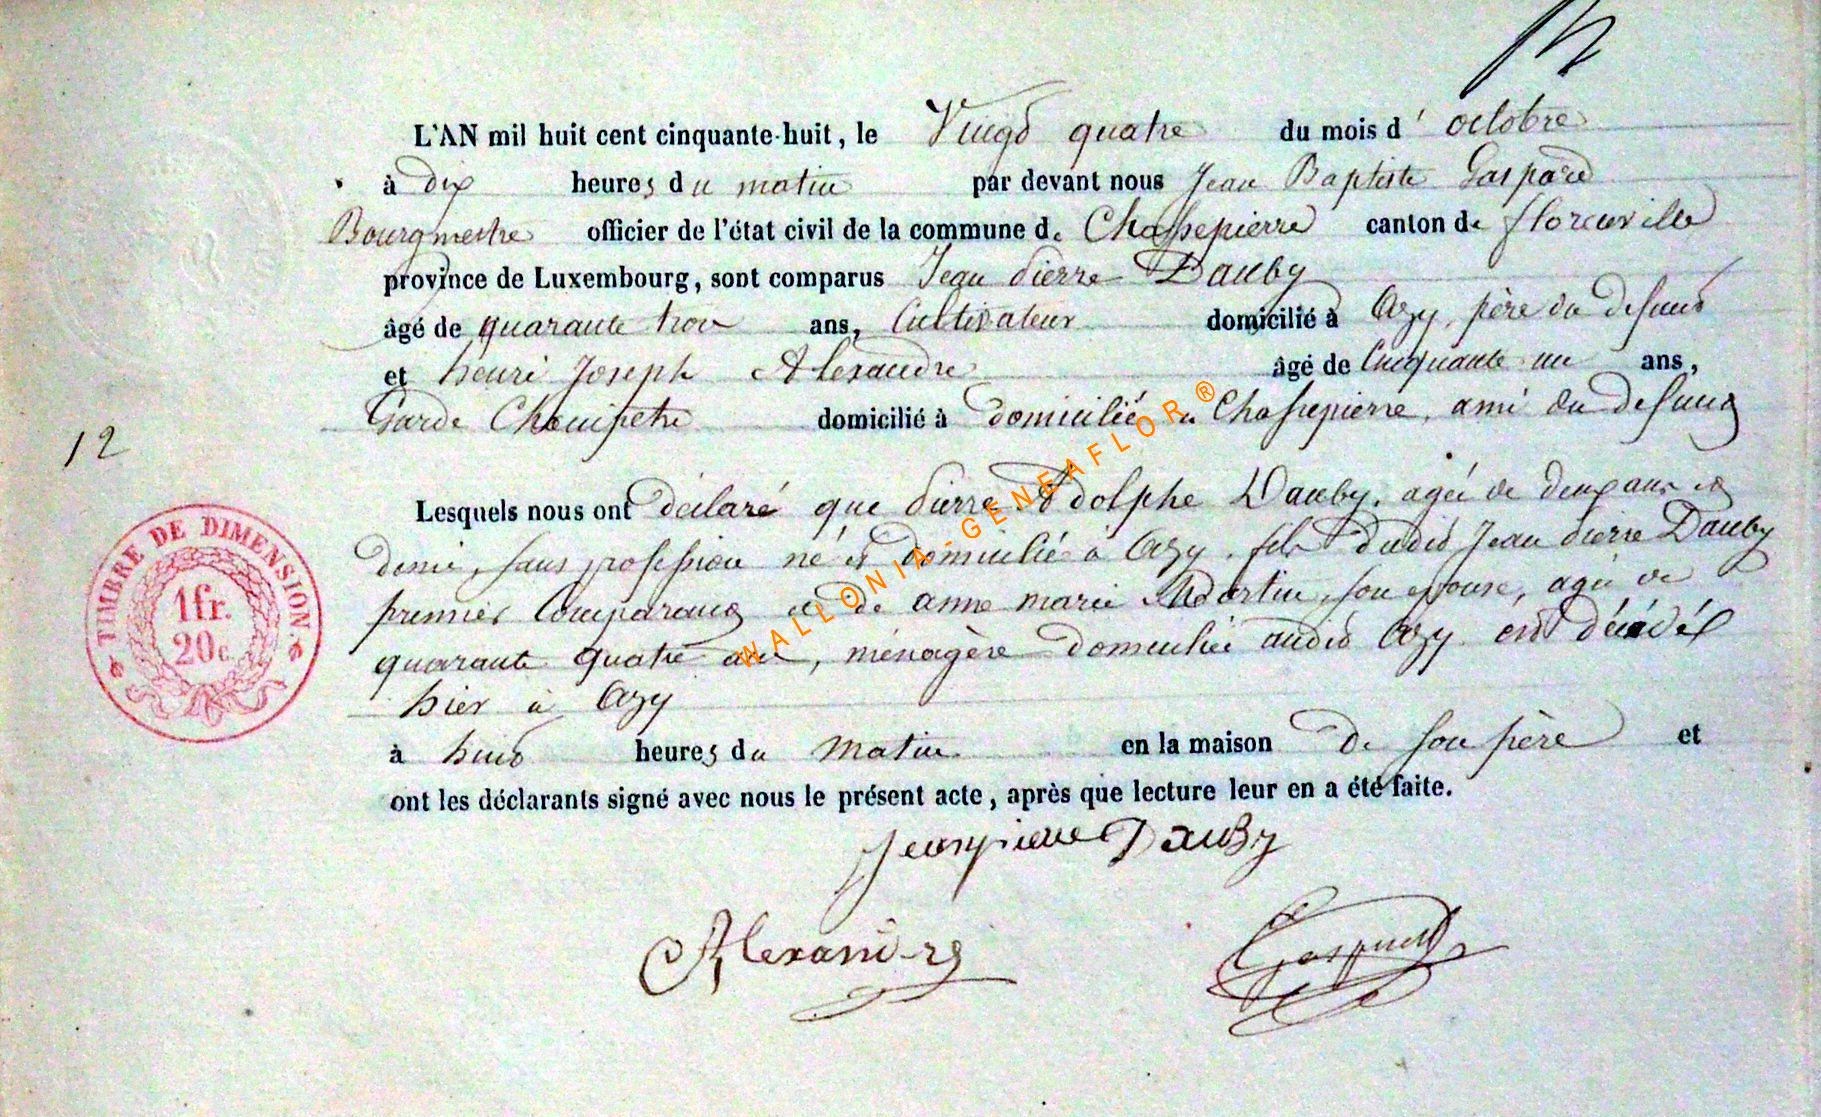 L'AN mil huit cent cinquante-huit, le Vingt quatre du mois d'octobre
à dix heures du matin par devant nous Jean Baptiste Gaspard
Bourgmestre officier de l'état civil de la commune de Chassepierre canton de florenville
province de Luxembourg, sont comparus Jean Pierre Dauby
âgé de quarante trois ans, Cultivateur domicilié à Azy, père du defunt
et henri Joseph Alexandre âgé de Cinquante un ans,
Garde Champetre domicilié à domicilié à Chassepierre, ami du defunt
12
Lesquels nous ont déclaré que Pierre Adolphe Dauby, agé de deux ans et
demi, sans profession né et domicilié à Azy, fils dudit Jean Pierre Dauby
premier Comparant et de anne marie Martin, son epouse, agée de
quarante quatre ans, ménagère domiciliée audit Azy est décédé
hier à Azy
à huit heures du matin en la maison de son père et
ont les déclarants signé avec nous le présent acte, après que lecture leur en a été faite.
TIMBRE DE DIMENSION.
1fr.
20c
Jeanpierre Dauby
Alexandre
Gaspard
WALLONIA-GENEAFLOR®